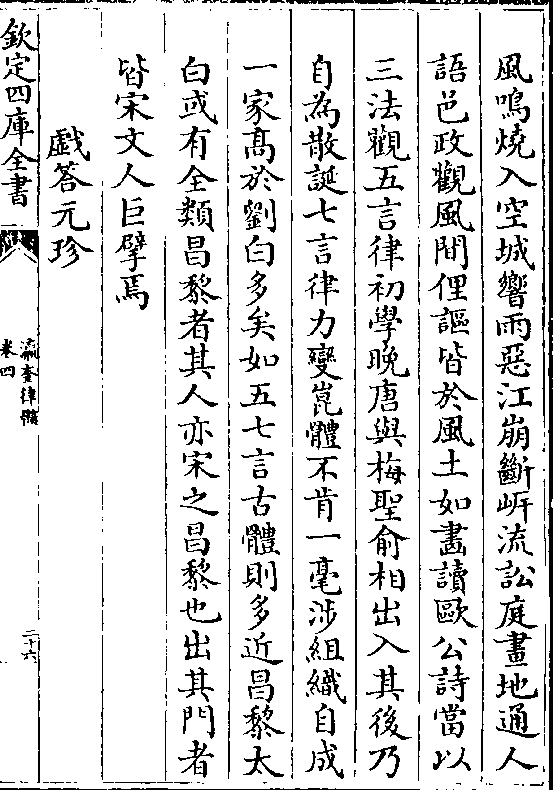 風鳴燒入空城響雨惡江崩斷岍流訟庭畫地通人
語邑政觀風間俚謳皆於風土如畫讀歐公詩當以
三法觀五言律初學晚唐與梅聖俞相出入其後乃
自為散誕七言律力變崑體不肯一毫涉組織自成
一家髙於劉白多矣如五七言古體則多近昌黎太
白或有全類昌黎者其人亦宋之昌黎也出其門者
皆宋文人巨擘焉
戯答元珍
欽定四庫全書
瀛奎律髓
卷四
二十六